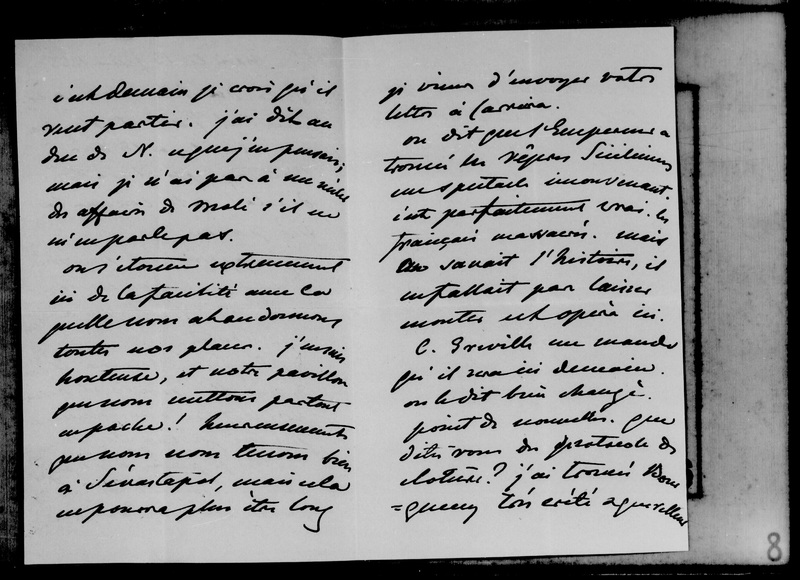 c'est demain je crois qu'il
veut partir. j'ai dit au
duc de N. ce que j'en pensais;
mais je n'ai pas à me mêler
des affaires de Molé s'il ne
m'en parle pas.
on s'étonne extrêmement
ici de la facilité avec la
quelle nous abandonnons
toutes nos places. j'en suis
honteuse, et notre pavillon
que nous mettons partout
en poche! heureusement
que nous nous tenons bien
à Sévastapol, mais cela
ne pourra plus être long
je viens d'envoyer votre
lettre à
on dit que l'Empereur a
trouvé les Vêpres Siciliennes
un spectacle inconvenant.
c'est parfaitement vrai. les
français massacrés. mais
on savait l'histoire, il
ne fallait pas laisser
monter cet opéra ici.
C. Greville me mande
qu'il sera ici demain.
on le dit bien changé.
point de nouvelles. que
dites vous du protocole de
cloture? j'ai trouvé Bour
=queney très
8